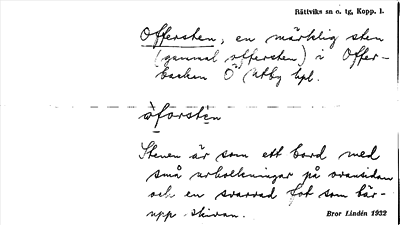 Rättviks sn o. tg, Kopp. l.
Offersten, en märklig sten
(gammal offersten) i Offer-
backen Ö Utby hpl.
òforstèn
Stenen är som ett bord med
små urholkningar på ovansidan
och en svarvad fot som bär-
upp skivan.
Bror Lindén 1932